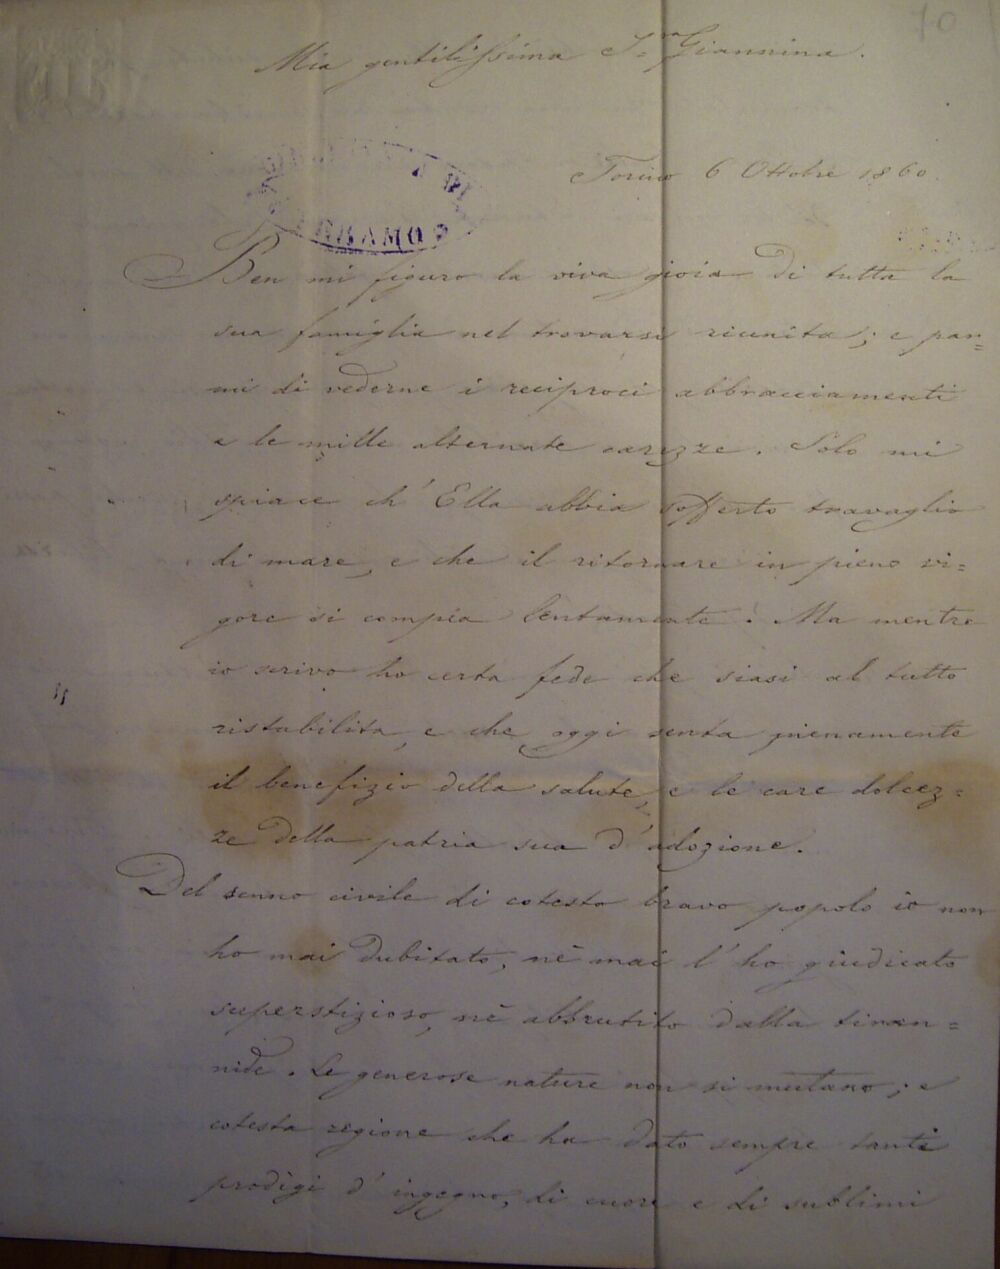 70
Mia gentilissima S.ra Giannina.
Torino 6 Ottobre 1860.
DI
ERAMO
Ben mi figuro la viva gioia di tutta la
sua famiglia nel trovarsi riunita; e par=
mi di vederne i reciproci abbracciamenti
e le mille alternate carezze. Solo mi
spiace ch' Ella abbia sofferto travaglio
di mare, e che il ritornare in pieno vi=
gore si compia lentamente. Ma mentre
io scrivo ho certa fede che siasi al tutto
ristabilita, e che oggi senta pienamente
il benefizio della salute, e le care dolcez=
ze della patria sua d' adozione.
Del senno civile di cotesto bravo popolo io non
ho mai dubitato, nè mai l' ho giudicato
superstizioso, nè abbrutito dalla tiran=
nide. Le generose nature non si mutano; e
cotesta regione che ha dato sempre tanti
prodigi d' ingegno, di cuore e di sublimi